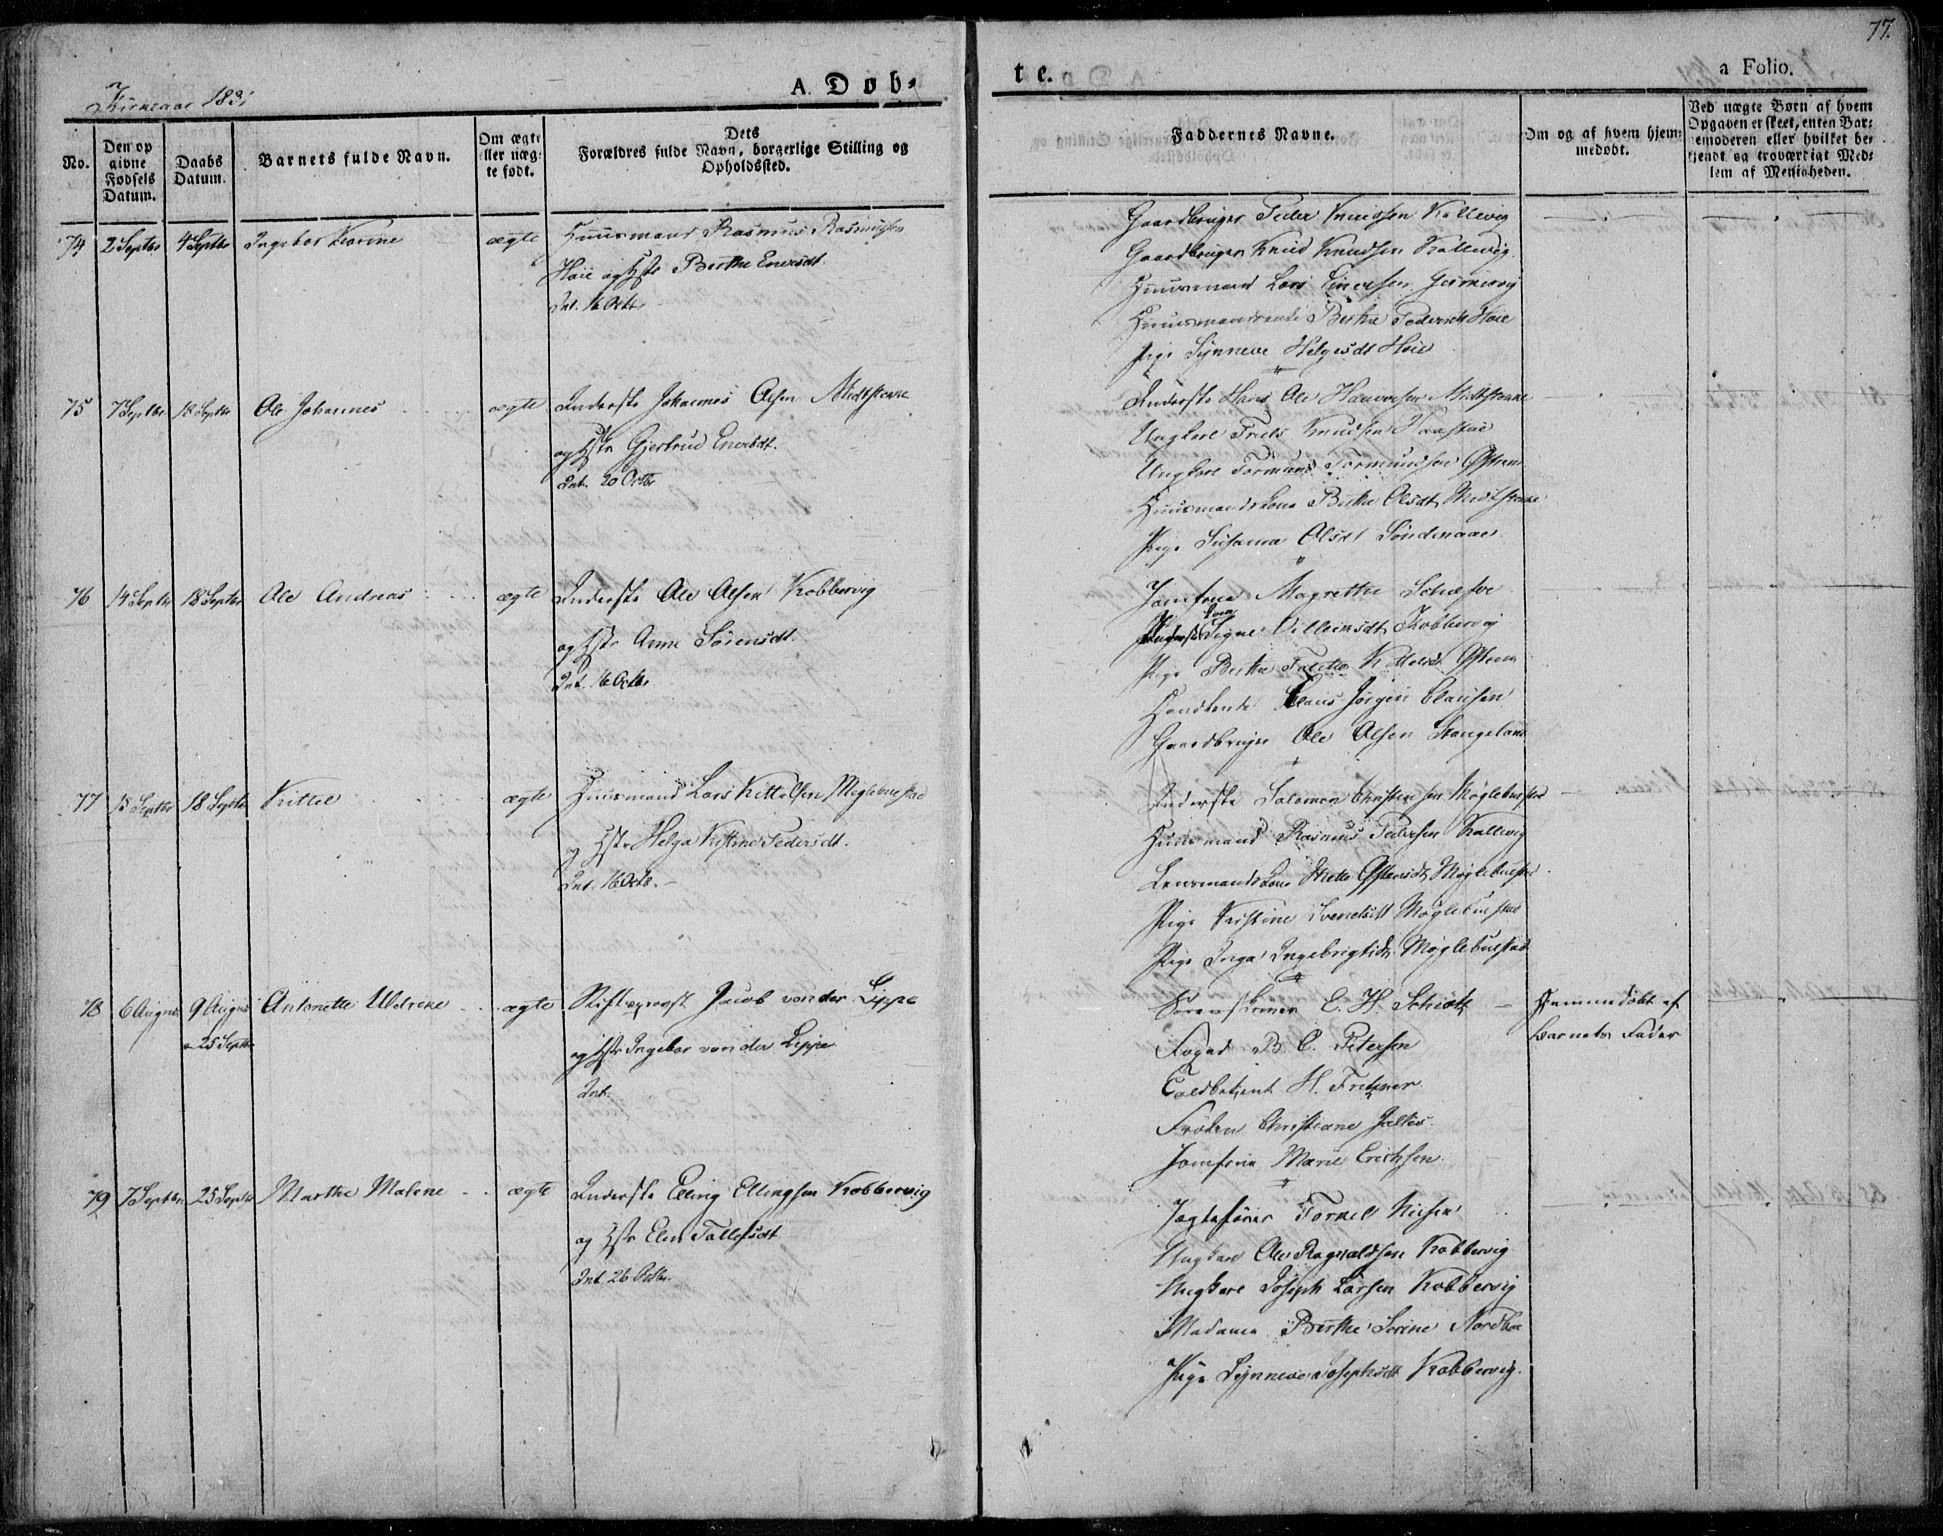 77.
Kirkeaar 1831
A. Døb-
te.
a Folio.
No.
Den op
givne
Fødsels
Datum.
Daabs
Datum.
Barnets fulde Navn.
Om ægte
eller uæg-
te født.
Dets
Forældres fulde Navn, borgerlige Stilling og
Opholdssted.
Faddernes Navne.
Om og af hvem hjem-
medøbt.
Ved uægte Børn af hvem
Opgaven er skeet, enten Bar-
nemoderen eller hvilket be-
kjendt og troværdigt Med-
lem af Menigheden.
74 2 Septbr 4 Septbr Ingebor Karine ægte Huusmand Rasmus Rasmusen
Høie og Hstr Berthe Eversdt.
Int. 16 Octbr
Gaardbruger Peder Knudsen Kallevig
Gaardbruger Knud Knudsen Kallevig.
Huusmand Lars
Huusmandsenke Berthe Pedersdt Høie
Pige Synneve Helgesdt Høie
75 7 Septbr 18 Septbr Ole Johannes ægte Inderste Johannes Olsen Midtstokke
og Hstr Gjertrud Eversdt.
Int. 20 Octbr
Inderste Hans Ole Midtstokke
Ungkarl Knudsen
Ungkarl Tormund Tormundsen
Huusmandskone Berthe Olsdt Midtstokke
Pige Susanna Olsdt Søndenaae
76 14 Septbr 18 Septbr Ole Andreas ægte Inderste Ole Olsen Kobbervig
og Hstr Anne Sørensdt.
Int. 16 Octbr
Jomfrue Magrethe
Signe Villumsdt Kobbervig
Pige Berthe
Claus Jørgen Clausen
Gaardbruger Ole Olsen Stangeland
77 15 Septbr 18 Septbr Kittel ægte Huusmand Lars Kittelsen Møglebustad
og Hstr Helga Kistine Pedersdt.
Int. 16 Octbr.
Inderste Salomon Christensen Møglebustad
Huusmand Rasmus Pedersen Kallevig
Lensmandskone Mette Møglebustad
Pige Kristine Møglebustad
Pige Inga Ingebrigtsdt Møglebustad
78 6 August 9 August Antonette Wdrene ægte Stiftsprovst Jacob von der Lippe
25 Septbr
og Hstr Ingebor von der Lippe
Int.
Sorenskriver E. H. Schiøtz
Foged B. C. Petersen
Toldbetjent H. Fretzner
Frøken Christiane
Jomfrue Marie Erichsen
Hjemmedøbt af
Barnets Fader
79 7 Septbr 25 Septbr Marthe Malene ægte Inderste Elling Ellingsen Kobbervig
og Hstr Elen Tollefsdt
Int. 26 Octbr.
Jægtefører Tornel Nielsen
Ungkarl Ole Ragnvaldsen Kobbervig
Ungkarl Joseph Larsen Kobbervig
Madame Berthe Serine Nordbøe
Pige Synneve Josephsdt Kobbervig.